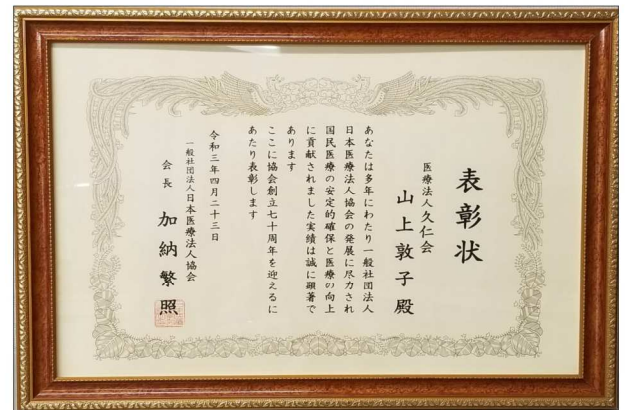 表彰状
医療法人久仁会
山上敦子殿
あなたは多年にわたり一般社団法人
日本医療法人協会の発展に尽力され
国民医療の安定的確保と医療の向上
に貢献されました実績は誠に顕著で
あります
ここに協会創立七十周年を迎えるに
あたり表彰します
令和三年四月二十三日
一般社団法人日本医療法人協会
会長 加納繁照